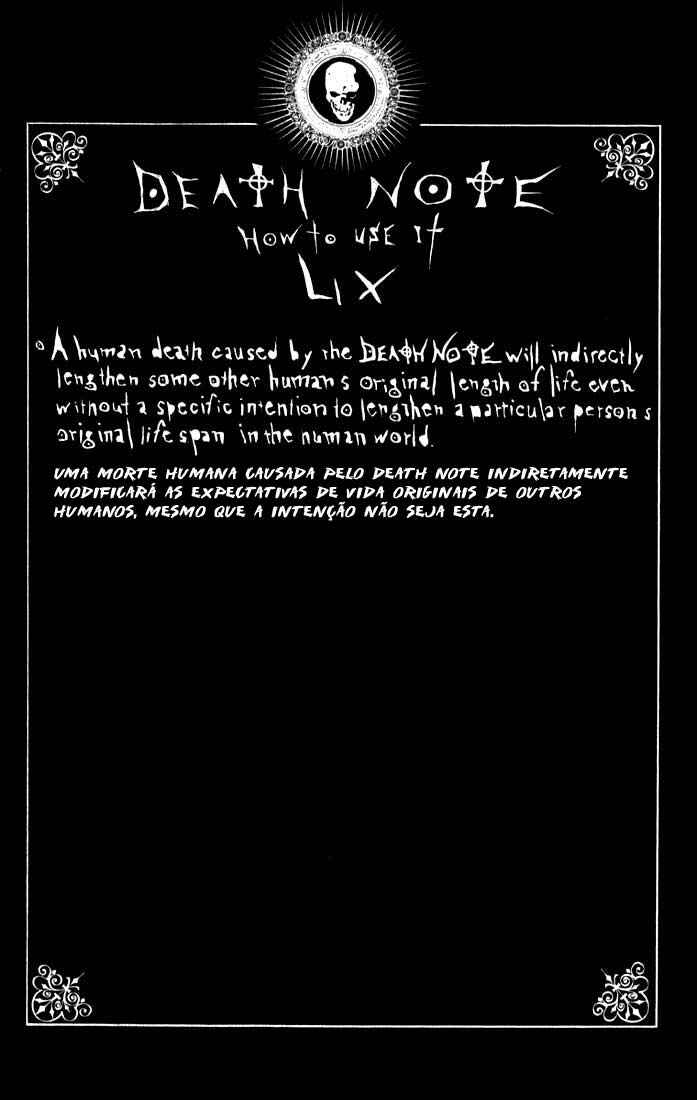 DEATH NOTE
HOW to USE IT
LIX
A human death caused by the DEATH NOTE will indirectly
lengthen some other human s original length of life even
without a specific intention to lengthen a particular person s
original life span in the human world.
UMA MORTE HUMANA CAUSADA PELO DEATH NOTE INDIRETAMENTE
MODIFICARÁ AS EXPECTATIVAS DE VIDA ORIGINAIS DE OUTROS
HUMANOS, MESMO QUE A INTENÇÃO NÃO SEJA ESTA.